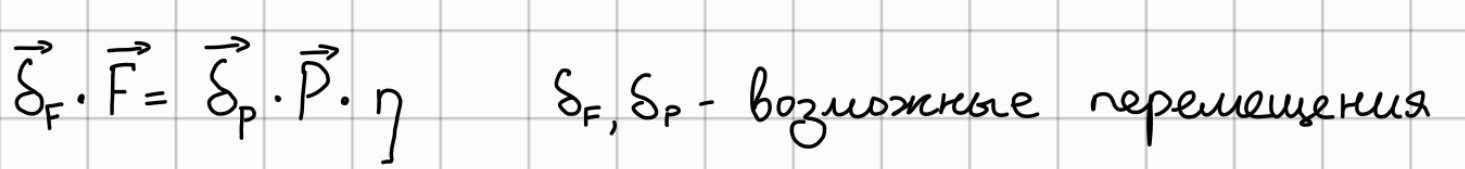 $\vec{\delta}_F \cdot \vec{F} = \vec{\delta}_P \cdot \vec{P} \cdot \eta$ $\delta_F, \delta_P$ - возможные перемещения